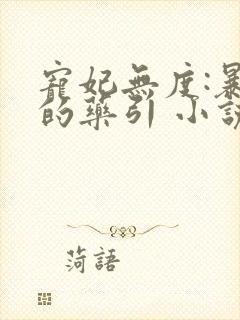 寵妃無度:暴
的藥引 小說
菏語